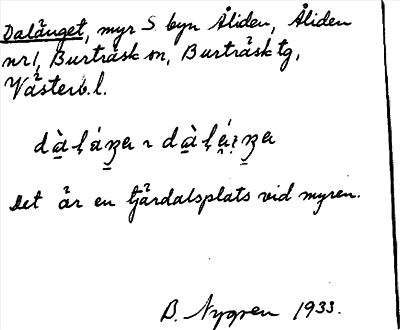 Dalånget, myr S. byn Åliden, Åliden
nr 1, Burträsk sn, Burträsk tg,
Västerb. l.
Det är en tjärdalsplats vid myren.
B. Nygren 1933.